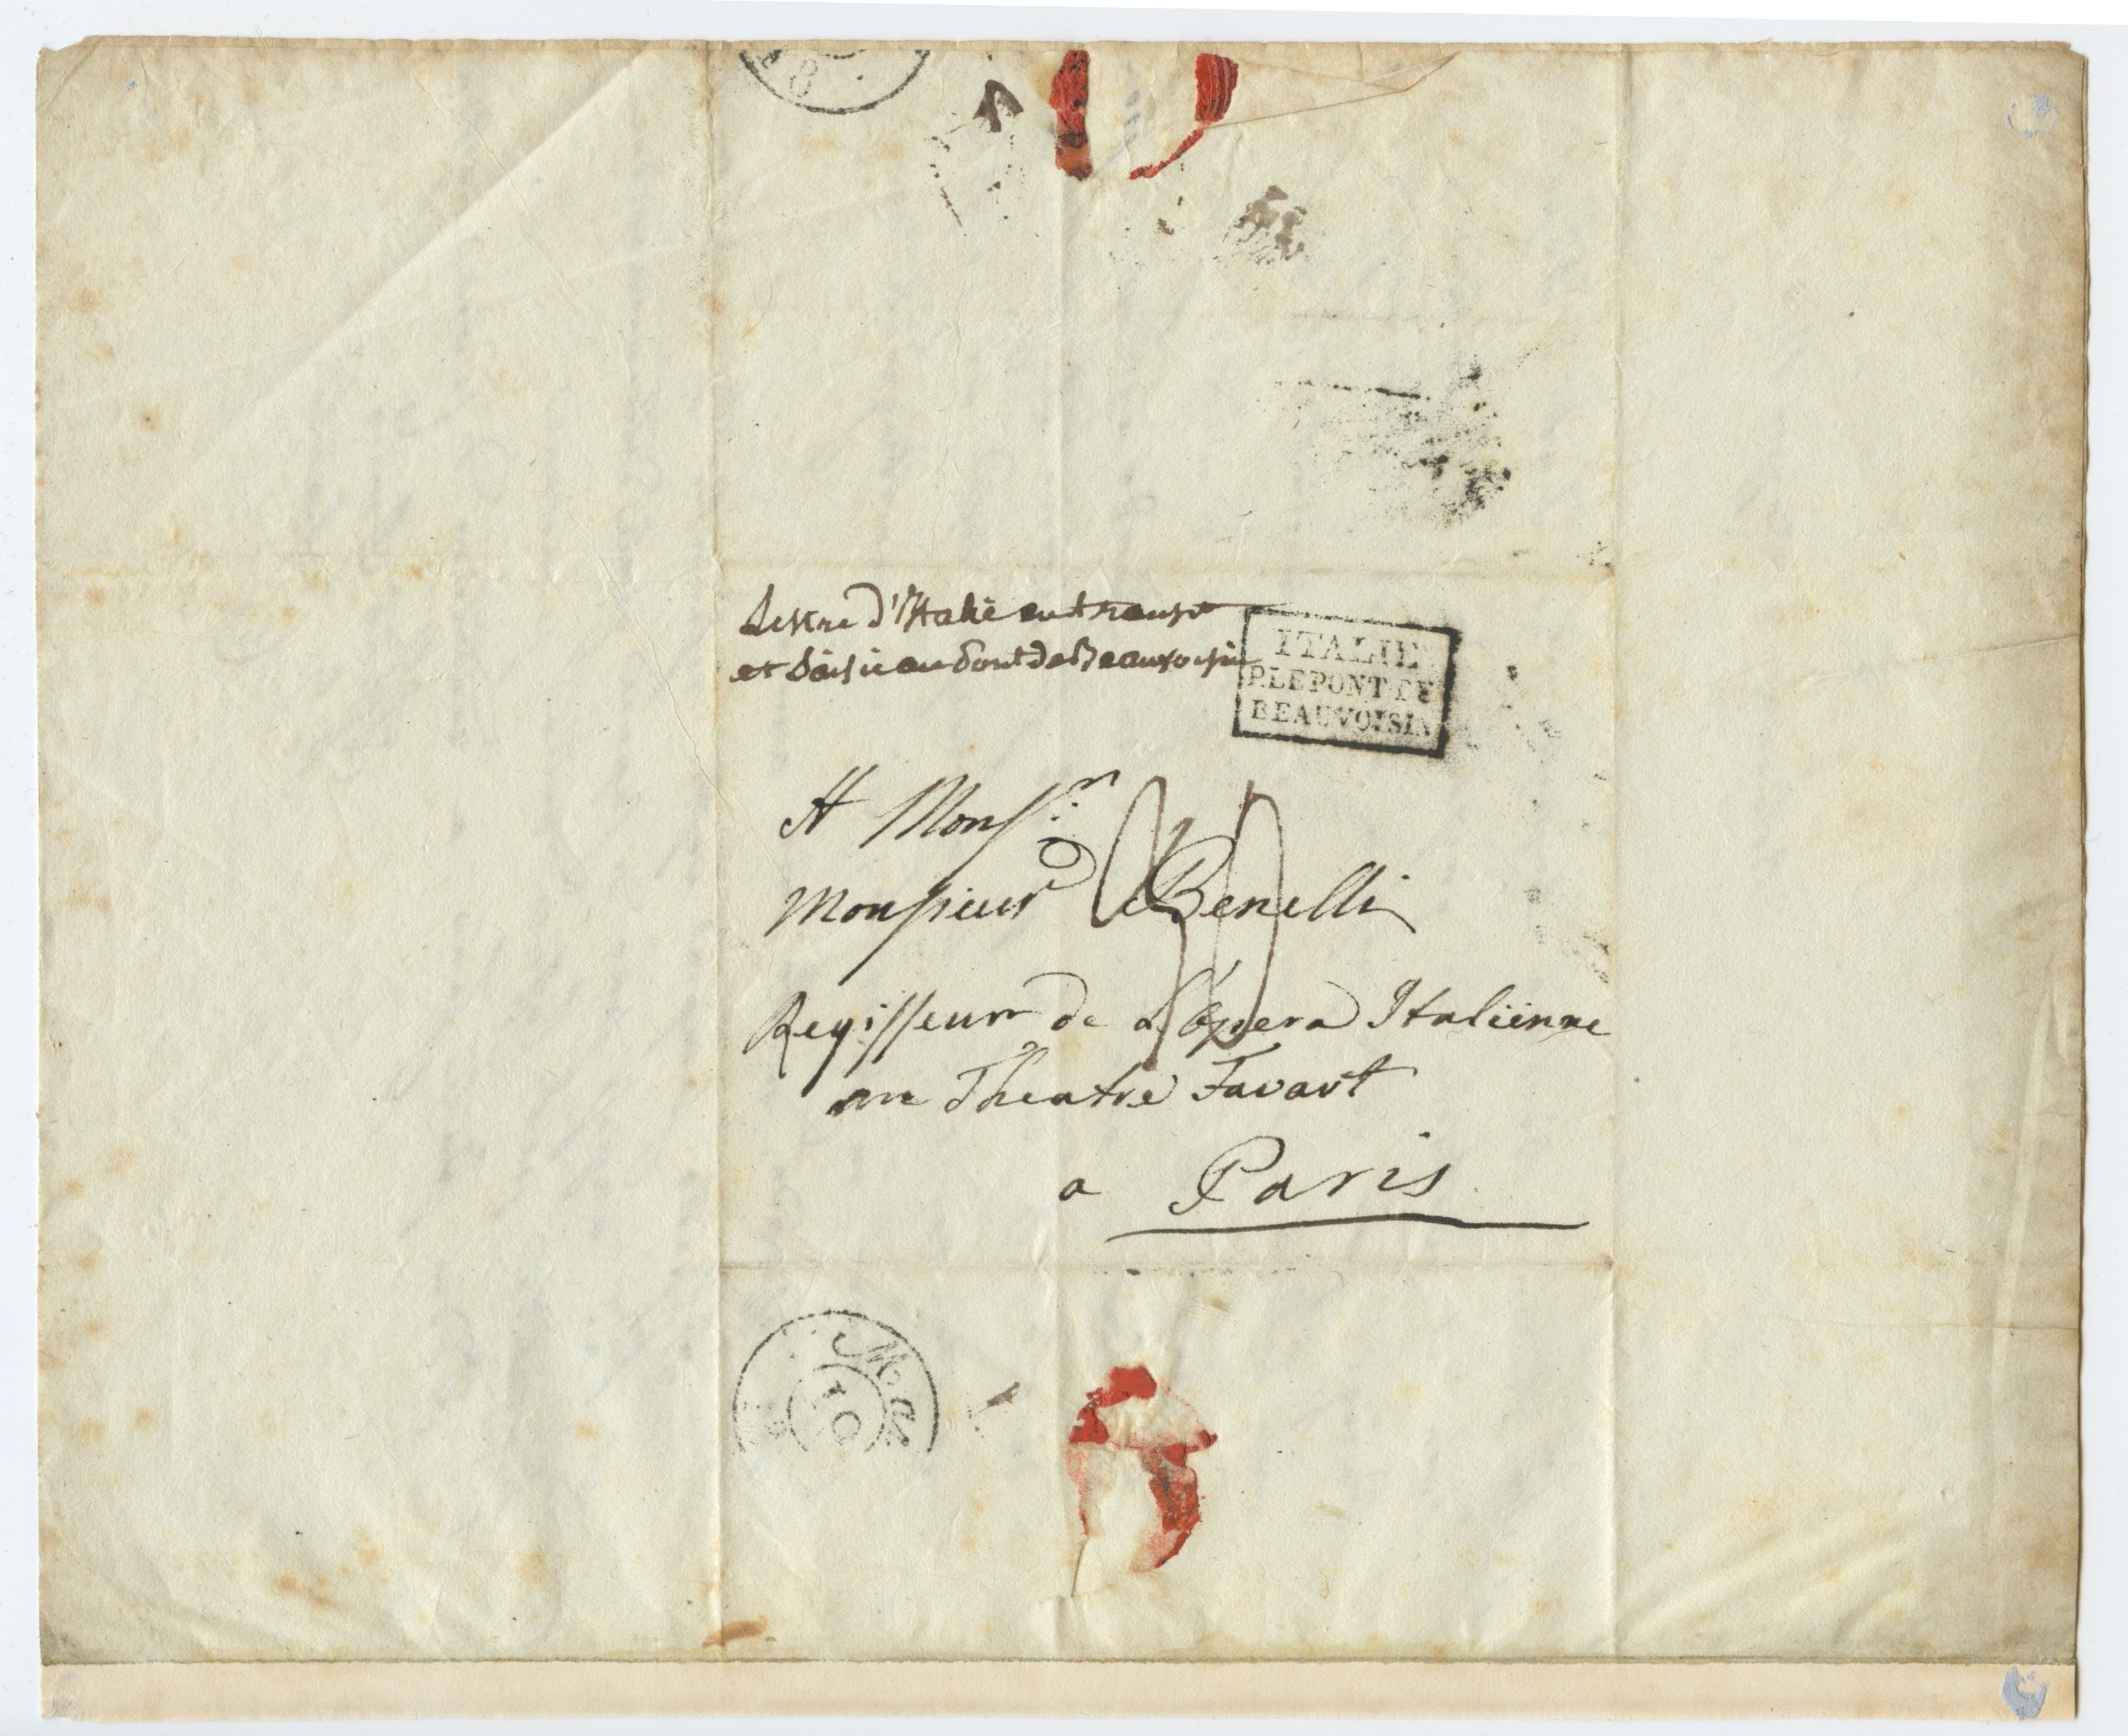 18
Lettre d'Italie en transe
et Saisie au Pont de Beauvoisin
ITALIE
P. LE PONT DE
BEAUVOISIN
A Monsr.
Monsieur Benelli
Regisseur de L'Opera Italiènne
au Theatre Favart
a Paris
Mar
10